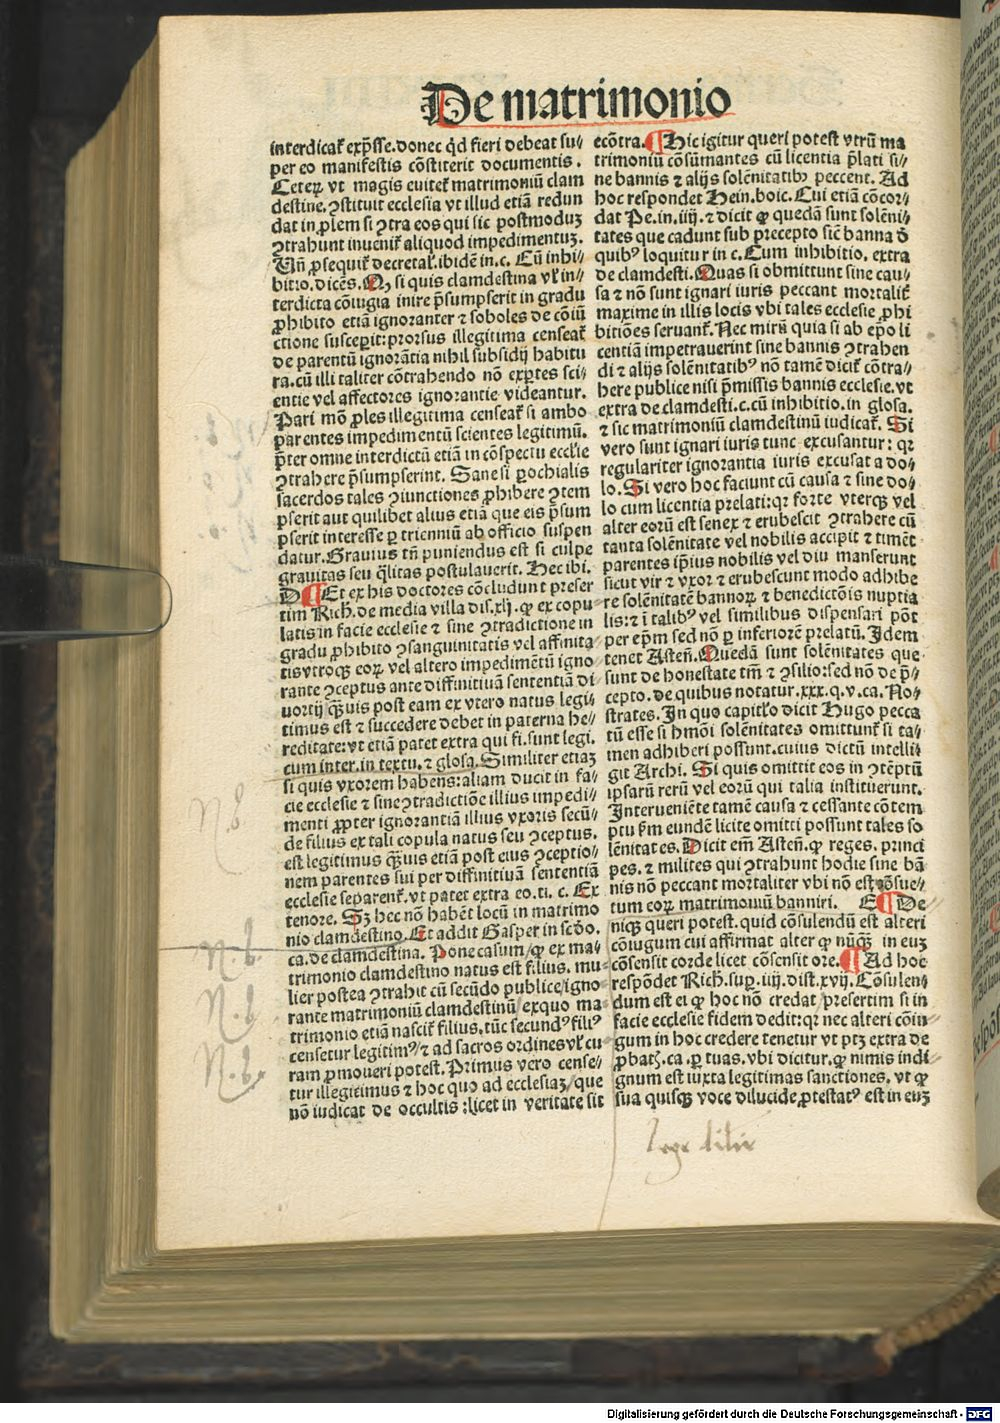 De matrimonio
interdicat᷑ exp̄sse. donec q̇d fieri debeat su⸗
per eo manifestis cōstiterit documentis.
Ceteꝝ vt magis euitet᷑ matrimoniū clam
destine. ꝯstituit ecclesia vt illud etiā redun
dat in ꝓlem si ꝯtra eos qui sic postmoduꝫ
ꝯtrahunt inuenit᷑ aliquod impedimentuꝫ.
Vn̄ ꝓsequit᷑ decretal᷑. ibidē in. c. Cū inhi⸗
bitio. dicēs. si quis clamdestina vl᷑ in⸗
terdicta cōiugia inire p̄sumpserit in gradu
ꝓhibito etiā ignoranter ⁊ soboles de cōiū
ctione susceperit: prorsus illegitima censeat᷑
de parentū ignorātia nihil subsidij habitu
ra. cū illi taliter cōtrahendo nō exꝑtes sci⸗
entie vel affectores ignorantie videantur.
Pari mō ꝓles illegitima censeat᷑ si ambo
parentes impedimentū scientes legitimū.
p̄ter omne interdictū etiā in cōspectu eccl̄ie
ꝯtrahere p̄sumpserint. Sane si ꝑochialis
sacerdos tales ꝯiunctiones ꝓhibere ꝯtem
pserit aut quilibet alius etiā que eis p̄sum
pserit interesse ꝑ trienniū ab officio suspen
datur. Grauius tn̄ puniendus est si culpe
grauitas seu q̄litas postulauerit. Hec ibi.
D Et ex his doctores cōcludunt preser
tim Rich. de media villa dis. xlj. ꝙ ex copu
latis in facie ecclesie ⁊ sine ꝯtradictione in
gradu ꝓhibito ꝯsanguinitatis vel affinita⸗
tis vtrocꝙ eoꝝ vel altero impedimētū igno⸗
rante ꝯceptus ante diffinitiuā sententiā di
uortij q̄ꝫuis post eam ex vtero natus legi⸗
timus est ⁊ succedere debet in paterna he⸗
reditate: vt etiā patet extra qui fi. sunt legi.
cum inter. in textu. ⁊ glosa. Similiter etiaꝫ
si quis vxorem habens: aliam ducit in fa⸗
cie ecclesie ⁊ sine ꝯtradictiōe illius impedi⸗
menti ꝓpter ignorantiā illius vxoris secū⸗
de filius ex tali copula natus seu ꝯceptus.
est legitimus q̄ꝫuis etiā post eius ꝯceptio⸗
nem parentes sui per diffinitiuā sententiā
ecclesie separent᷑. vt patet extra eo. ti. c. Ex
tenore. Sꝫ hec nō habēt locū in matrimo
nio clamdestino. Et addit Gasper in scd̄o.
ca. de clamdestina. Pone casum/ ꝙ ex ma⸗
trimonio clamdestino natus est filius. mu⸗
lier postea ꝯtrahit cū secūdo publice/ igno⸗
rante matrimoniū clamdestinū/ ex quo ma⸗
trimonio etiā nascit᷑ filius. tūc secundꝰ filiꝰ
censetur legitimꝰ/ ⁊ ad sacros ordines vl᷑ cu⸗
ram ꝓmoueri potest. Primus vero cense⸗
tur illegitimus ⁊ hoc quo ad ecclesiaꝫ/ que
nō iudicat de occultis: licet in veritate sit
ecōtra. Hic igitur queri potest vtrū ma
trimoniū cōsūmantes cū licentia p̄lati si⸗
ne bannis ⁊ alijs solēnitatibꝰ peccent. Ad
hoc respondet Hein. boic. Cui etiā cōcor⸗
dat Pe. in. iiij. ⁊ dicit ꝙ quedā sunt solēni⸗
tates que cadunt sub precepto sic̄ banna d̄
quibꝰ loquitur in c. Cum inhibitio. extra
de clamdesti. Quas si obmittunt sine cau⸗
sa ⁊ nō sunt ignari iuris peccant mortalit᷑
maxime in illis locis vbi tales ecclesie ꝓhi
bitiōes seruant᷑. Nec mirū quia si ab ep̄o li
centiā impetrauerint sine bannis ꝯtrahen
di ⁊ alijs solēnitatibꝰ nō tamē dicit᷑ cōtra⸗
here publice nisi p̄missis bannis ecclesie. vt
extra de clamdesti. c. cū inhibitio. in glosa.
⁊ sic matrimoniū clamdestinū iudicat᷑. Si
vero sunt ignari iuris tunc excusantur: qꝛ
regulariter ignorantia iuris excusat a do⸗
lo. Si vero hoc faciunt cū causa ⁊ sine do⸗
lo cum licentia prelati: qꝛ forte vterqꝫ vel
alter eorū est senex ⁊ erubescit ꝯtrahere cū
tanta solēnitate vel nobilis accipit ⁊ timēt
parentes ip̄ius nobilis vel diu manserunt
sicut vir ⁊ vxor ⁊ erubescunt modo adhibe
re solēnitatē bannoꝝ ⁊ benedictōis nuptia
lis: ⁊ ī talibꝰ vel similibus dispensari pōt
per ep̄m sed nō ꝑ inferiorē prelatū. Idem
tenet Asten̄. Quedā sunt solēnitates que
sunt de honestate tm̄ ⁊ ꝯsilio: sed nō de p̄⸗
cepto. de quibus notatur. xxx. q. v. ca. No⸗
strates. In quo capit̄lo dicit Hugo pecca
tū esse si hmōi solēnitates omittunt᷑ si ta⸗
men adhiberi possunt. cuius dictū intelli⸗
git Archi. Si quis omittit eos in ꝯtēptū
ipsarū rerū vel eorū qui talia instituerunt.
Interueniēte tamē causa ⁊ cessante cōtem
ptu ẜm eundē licite omitti possunt tales so
lēnitates. Dicit em̄ Asten̄. ꝙ reges. princi
pes. ⁊ milites qui ꝯtrahunt hodie sine bā
nis nō peccant mortaliter vbi nō est cōsue⸗
tum eoꝝ matrimoniū banniri. E De
niqꝫ queri potest. quid cōsulendū est alteri
cōiugum cui affirmat alter ꝙ nūq̄ꝫ in euꝫ
cōsensit corde licet cōsensit ore. Ad hoc
respōdet Rich. suꝑ. iiij. dist. xvij. Cōsulen⸗
dum est ei ꝙ hoc nō credat/ presertim si in
facie ecclesie fidem dedit: qꝛ nec alteri cōiu⸗
gum in hoc credere tenetur vt ptꝫ extra de
ꝓbatꝫ. ca. ꝑ tuas. vbi dicitur. ꝙ nimis indi⸗
gnum est iuxta legitimas sanctiones. vt ꝙ
sua quisqꝫ voce dilucide ꝓtestatꝰ est in euꝫ
N. b.
N. b.
N. b.
N. b.
Digitalisierung gefördert durch die Deutsche Forschungsgemeinschaft - DFG